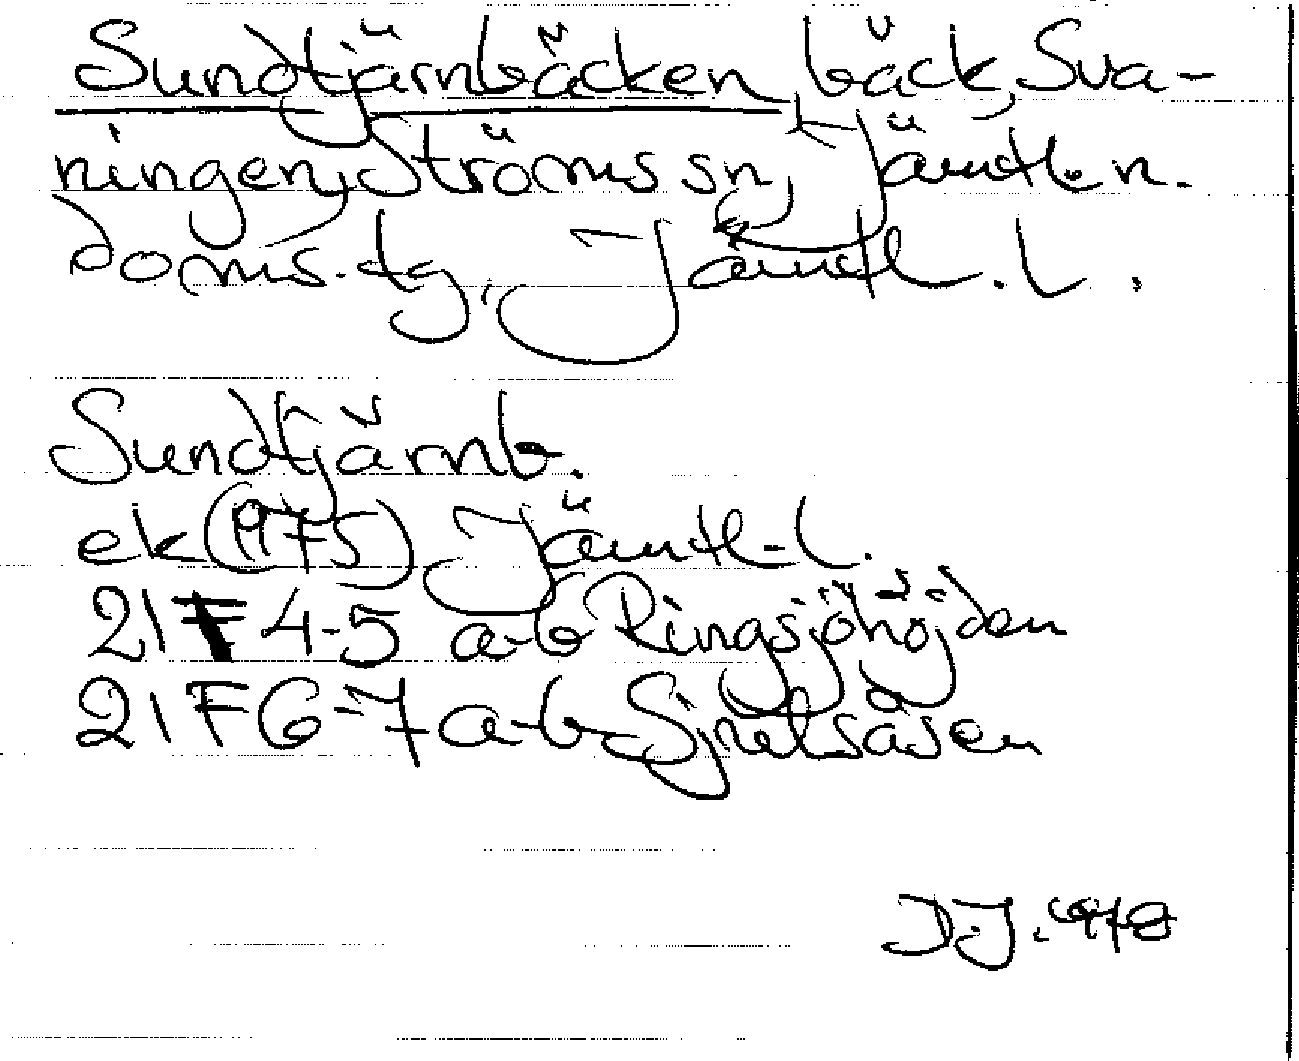 Sundtjärnbäcken, bäck, Sva-
ningen, Ströms sn, Jämtl. n.
doms. tg, Jämtl. l.
Sundtjärnb.
ek (1975) Jämtl. l.
21F 4-5 a-b Ringsjöhöjden
21F 6-7 a-b Sjnelsåsen
D.J. 1978